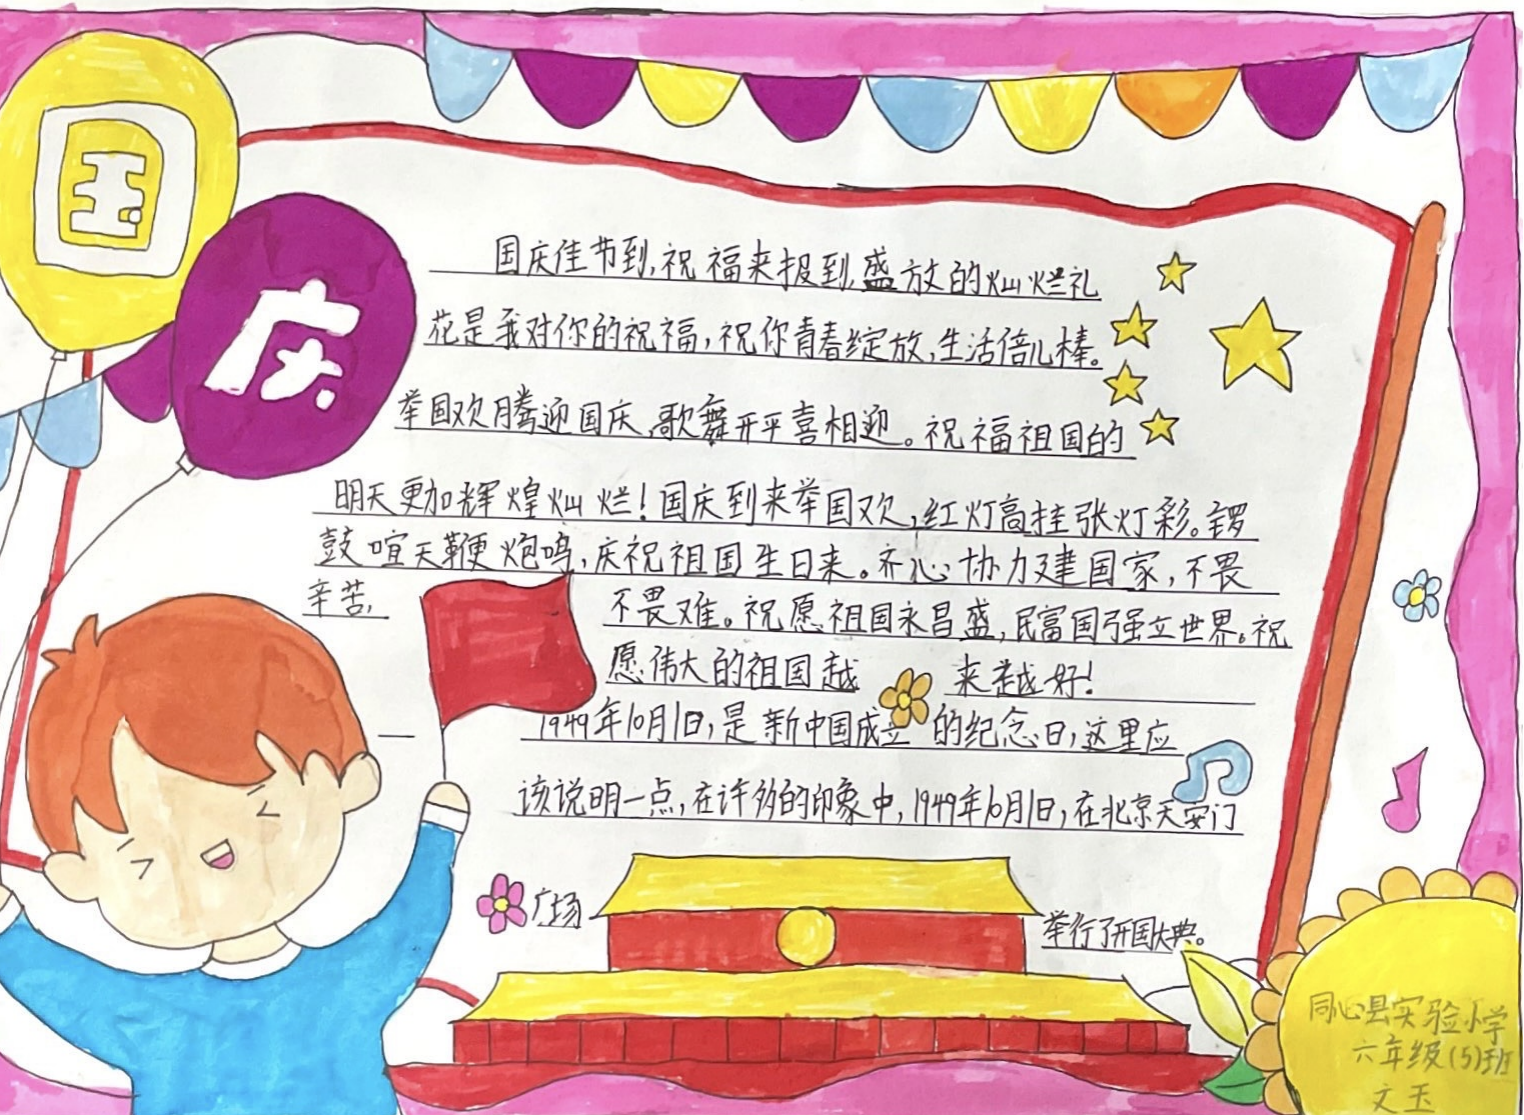 国
庆
国庆佳节到,祝福来报到,盛放的灿烂礼
花是我对你的祝福,祝你青春绽放,生活倍儿棒。
举国欢腾迎国庆,歌舞开平喜相迎。祝福祖国的
明天更加辉煌灿烂!国庆到来举国欢,红灯高挂张灯彩。锣
鼓喧天鞭炮鸣,庆祝祖国生日来。齐心协力建国家,不畏
辛苦,不畏难。祝愿祖国永昌盛,民富国强立世界。祝
愿伟大的祖国越来越好!
1949年10月1日,是新中国成立的纪念日,这里应
该说明一点,在许多的印象中,1949年10月1日,在北京天安门
广场举行了开国大典。
同心县实验小学
六年级(5)班
文玉